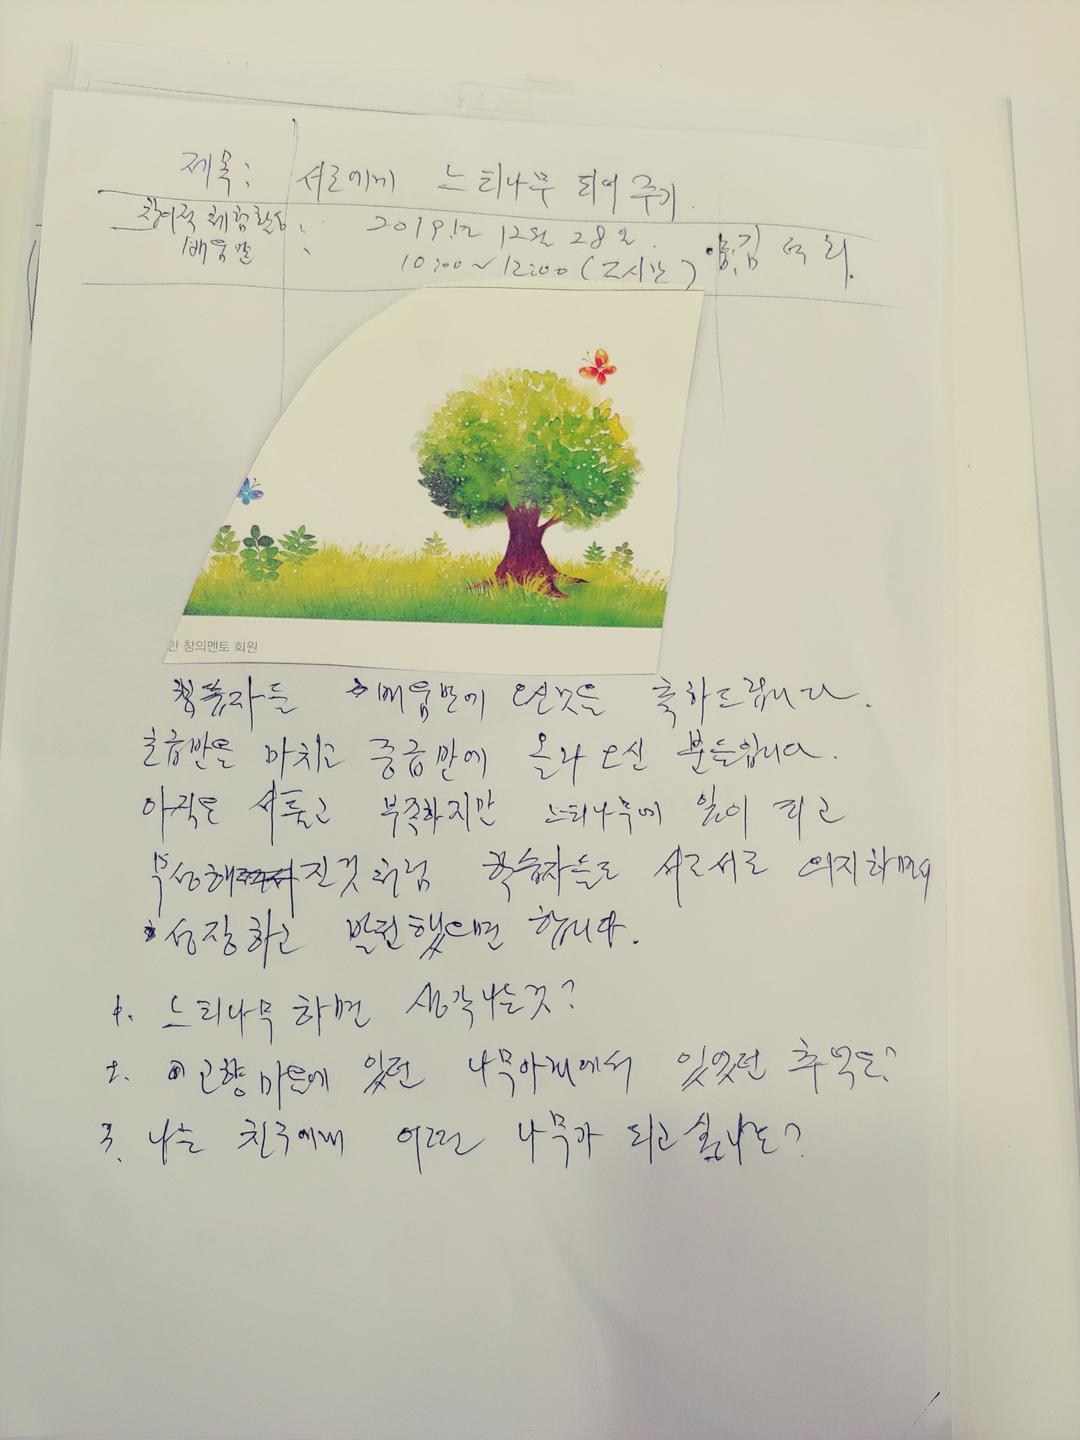 제목: 서로에게 느티나무 되어 주기
창의적 체험활동 : 2019년 12월 28일.
배움 : 10:00~12:00 (2시간) 김석희.
한 창의멘토 회원
학습자들 배움반에 오신것을 축하드립니다.
초급반을 마치고 중급반에 올라오신 분들입니다.
아직은 서툴고 부족하지만 느티나무에 잎이 피고
무성해진것처럼 학습자들도 서로서로 의지하며
성장하고 발전했으면 합니다.
1. 느티나무하면 생각나는것?
2. 고향마을에 있던 나무아래에서 있었던 추억은?
3. 나는 친구에게 어떤 나무가 되고싶나요?